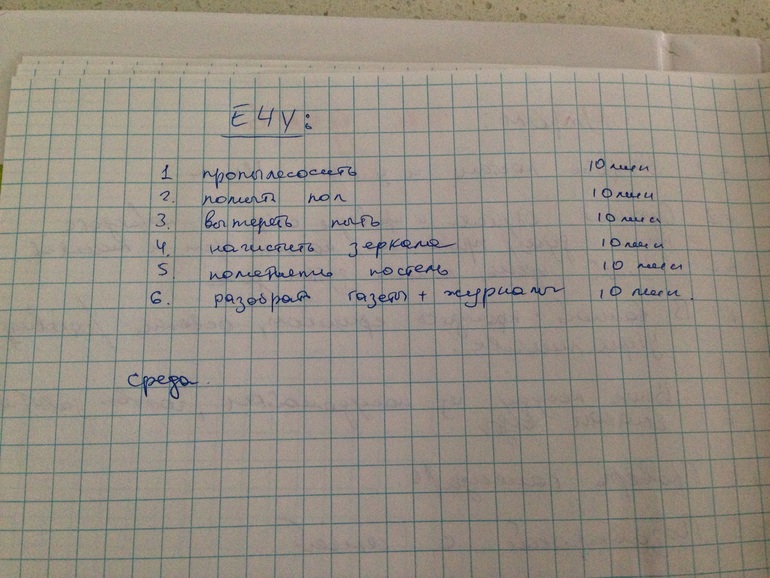 ЕЧУ:
1 пропылесосить 10 мин
2. помыть пол 10 мин
3. вытереть пыль 10 мин
4. начистить зеркала 10 мин
5 поменять постель 10 мин
6. разобрать газеты + журналы 10 мин.
среда.